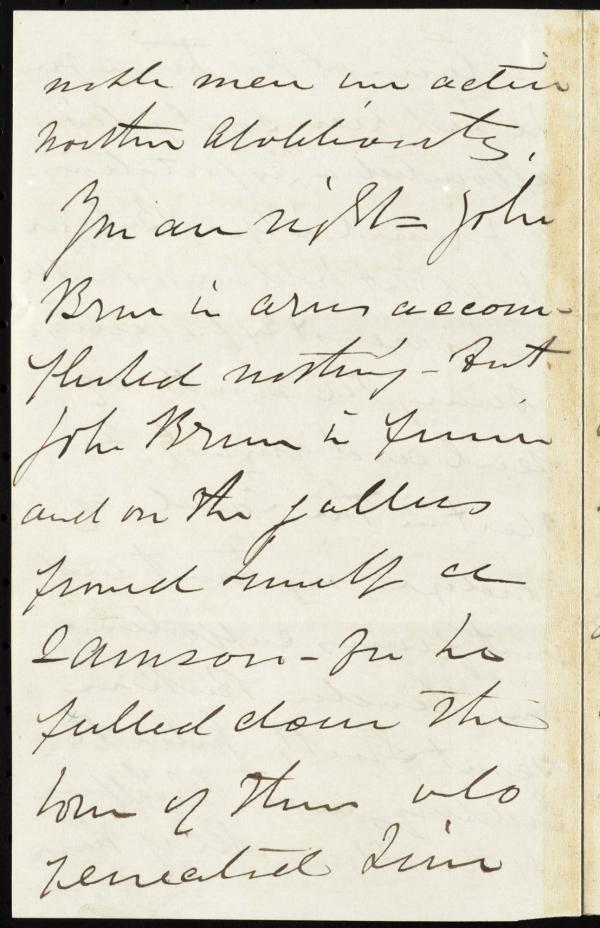 noble men in action
northern Abolitionists.
You are right – John
Brown in arms accom-
plished nothing – but
John Brown in prison
and on the gallows
proved himself a
Samson – for he
pulled down the
town of those who
him